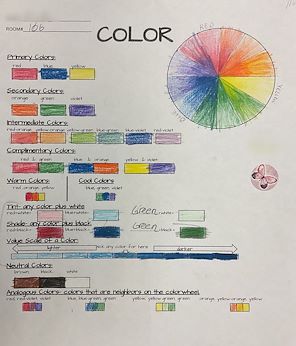 ROOM# 106
COLOR
RED
YELLOW
Primary Colors:
red blue yellow
Secondary Colors:
orange green violet
Intermediate Colors:
red-orange yellow-orange yellow-green blue-green blue-violet red-violet
Complimentary Colors:
red & green blue & orange yellow & violet
Warm Colors: Cool Colors:
red, orange, yellow blue, green, violet
Tint- any color plus white
red+white= blue+white= Green +white=
Shade- any color plus black
red+black= blue+black= Green +black=
Value Scale of a Color:
lighter pick any color for here darker
Neutral Colors:
brown black white
Analogous Colors- colors that are neighbors on the colorwheel.
red, red-violet, violet blue, blue-green, green yellow, yellow-green, green orange, yellow-orange, yellow